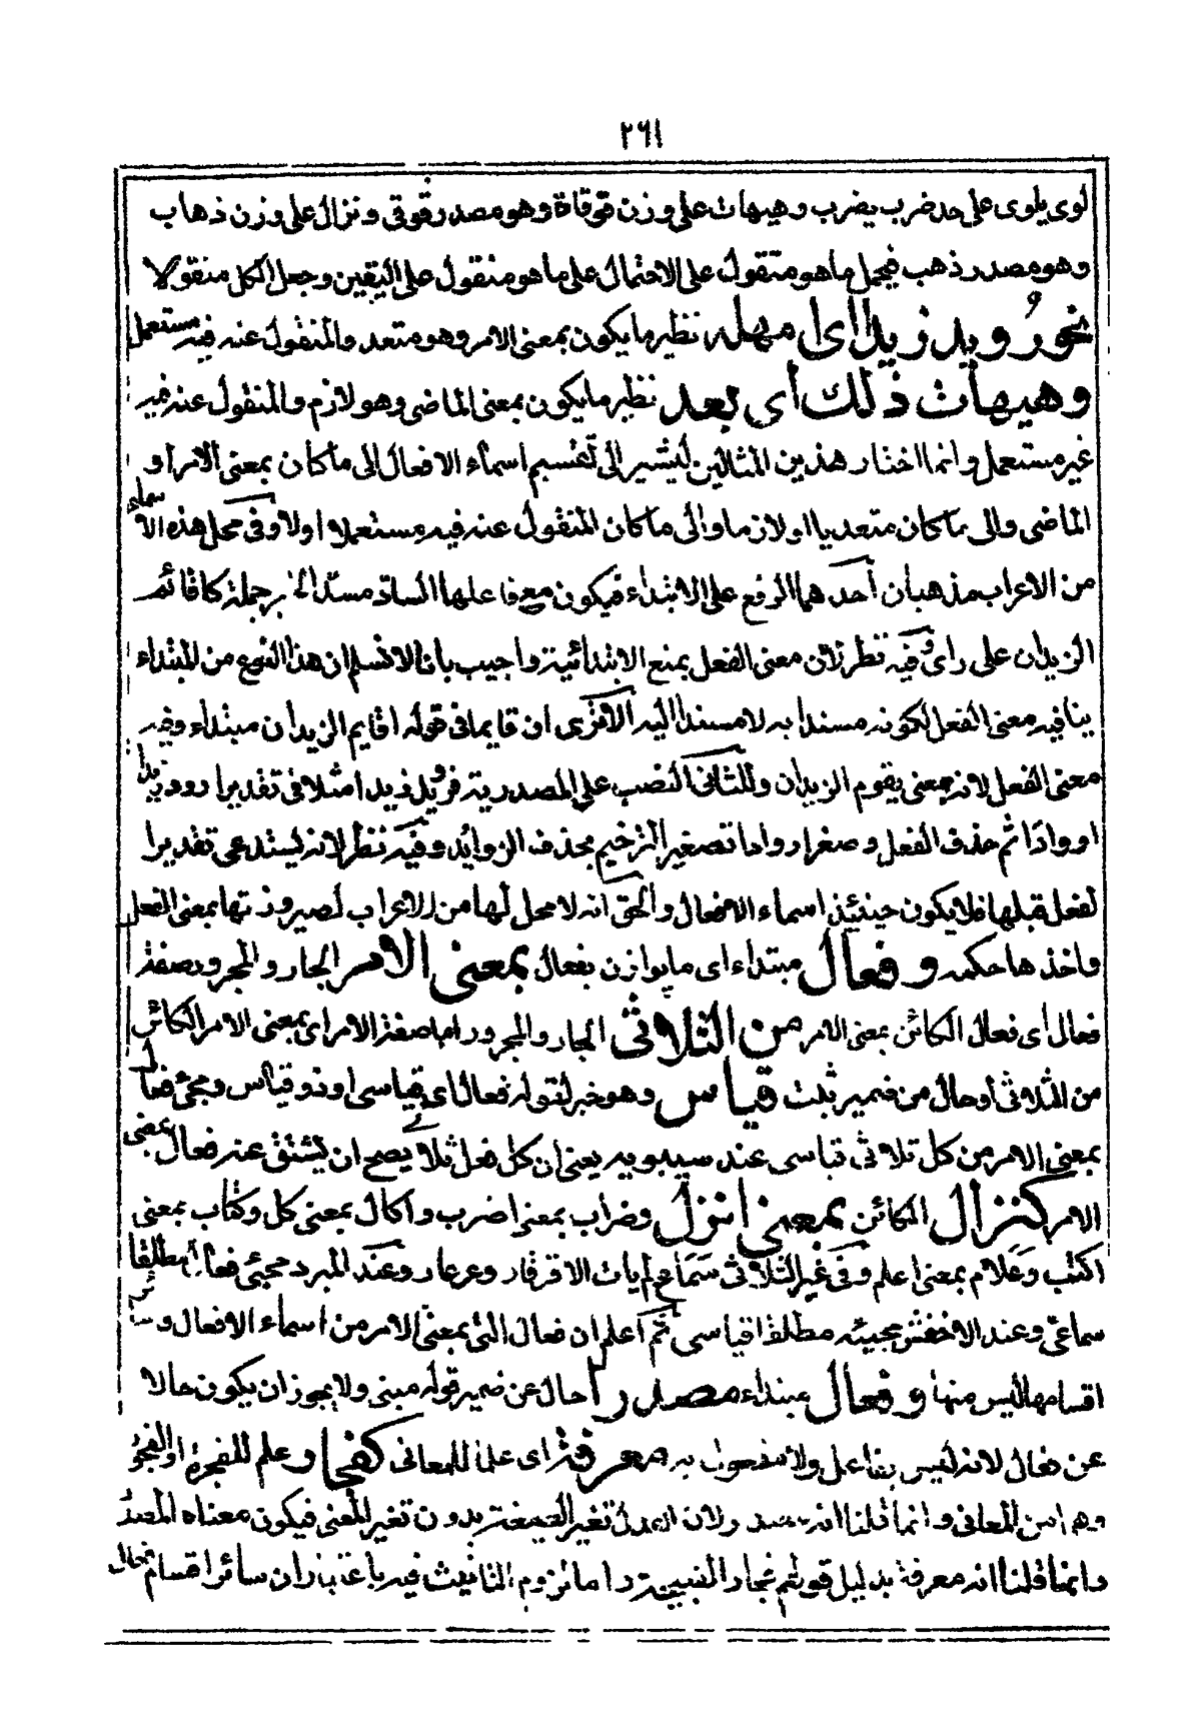 ٢٦١
لوى يلوى على حد ضرب يضرب وهيهات على وزن قوقاة وهو مصدر قوقى ونزال على وزن ذهاب
وهو مصدر ذهب فيحمل ما هو منقول على الاحتمال على ما هو منقول على اليقين وجعل الكل منقولا
نحو رُويد زيدا اى امهله نظير ما يكون بمعنى الامر وهو متعد والمنقول عنه فيه مستعمل
وهيهات ذلك أى بعد نظير ما يكون بمعنى الماضى وهو لازم والمنقول عنه غير
غير مستعمل وانما اختار هذين المثالين ليشير الى تقسيم اسماء الافعال الى ما كان بمعنى الامر او
الماضى والى ما كان متعديا او لازما والى ما كان المنقول عنه فيه مستعملا اولا وفى محل هذه الاسماء
من الاعراب مذهبان أحدهما الرفع على الابتداء فيكون مع فاعلها الساد مسد الخبر جملة كاقائم
الزيدان على راى وفيه نظر لان معنى الفعل يمنع الابتدائية واجيب بانا لا نسلم ان هذا النوع من المبتداء
ينافيه معنى الفعل لكونه مسندا به لا مسندا اليه الا ترى ان قايما فى قوله اقايم الزيدان مبتداء وفيه
معنى الفعل لانه بمعنى يقوم الزيدان والثانى النصب على المصدرية فرويد زيدا مثلا فى تقدير ارود زيدا
اروادا ثم حذف الفعل وصغر ارواداً تصغير الترخيم بحذف الزوايد وفيه نظر لانه يستدعى تقدير ا
لفعل قبلها فلا يكون حينئذ اسماء الافعال والحق انه لا محل لها من الاعراب لصيرورتها بمعنى الفعل
واخذها حكمه وفعال مبتداء اى ما يوازن بفعال بمعنى الامر الجار والمجرور بصفة
فعال اى فعال الكائن بمعنى الامر من الثلاثى الجار والمجرور اما صفة الامر اى بمعنى الامر الكائن
من الثلاثى أو حال من ضمير ثبت قياس وهو خبر لقوله فعال اى قياسى او ذو قياس ومجئ فعال
بمعنى الامر من كل ثلاثى قياسى عند سيبويه يعنى ان كل فعل ثلاثى يصح ان يشتق عنه فعال بمعنى
الامر كنزال الكائن بمعنى انزل وضراب بمعنى اضرب واكال بمعنى كل وكتاب بمعنى
اكتب وعلام بمعنى اعلم وفى غير الثلاثى سماعى لم يات الا قرقار وعرعار وعند المبرد مجئ فعال مطلقا
سماعى وعند الاخفش مجيئه مطلقا قياسى ثم اعلم ان فعال التى بمعنى الامر من اسماء الافعال و
اقسامها ليس منها وفعال مبتداء مصدرا حال عن ضمير قوله مبنى ولا يجوز ان يكون حالا
عن فعال لانه ليس بفاعل ولا مفعول به معرفة اى علما للمعانى كفجار علم للفجرة او الفجور
وهما من المعانى وانما قلنا انه مصدر ولان العدل تغير الصيغة بدون تغير المعنى فيكون معناه المصدر
وانما قلنا انه معرفة بدليل قولهم فجار القبيحة واما لزوم التانيث فيه باعتبار ان سائر اقسام فعال